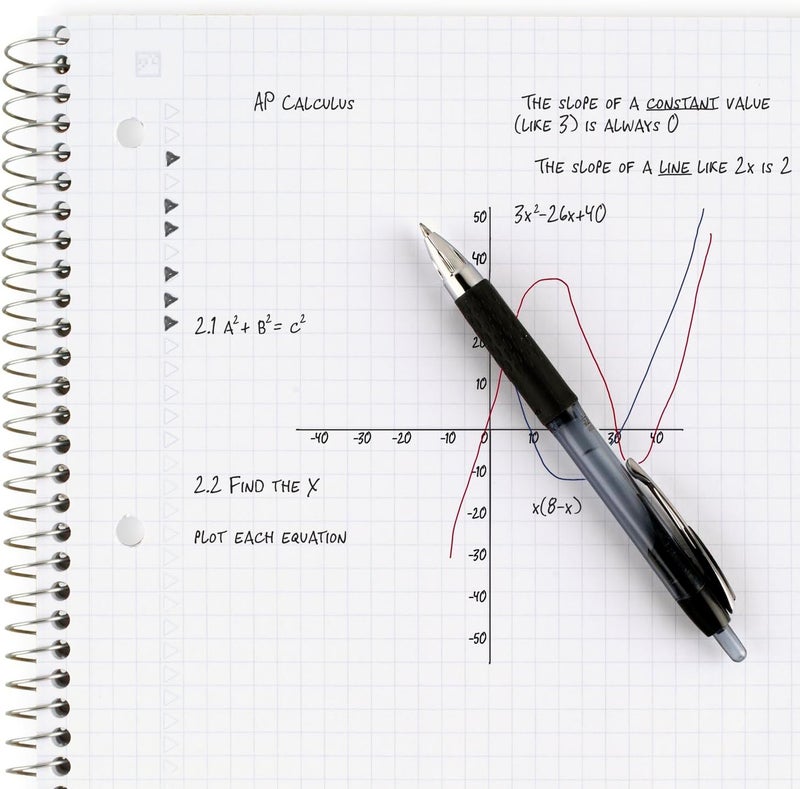 AP Calculus
The slope of a constant value
(like 3) is always 0
The slope of a line like 2x is 2
3x²-26x+40
50
40
20
10
2.1 A² + B² = C²
-40 -30 -20 -10 0 10 30 40
-10
2.2 Find the X
x(8-x)
-20
plot each equation
-30
-40
-50